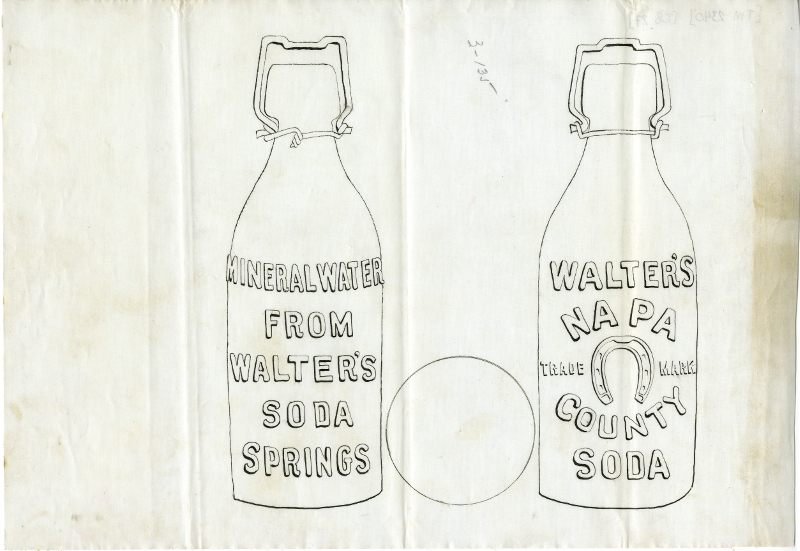 3-135
MINERAL WATER
FROM
WALTER'S
SODA
SPRINGS
WALTER'S
NAPA
TRADE MARK
COUNTY
SODA